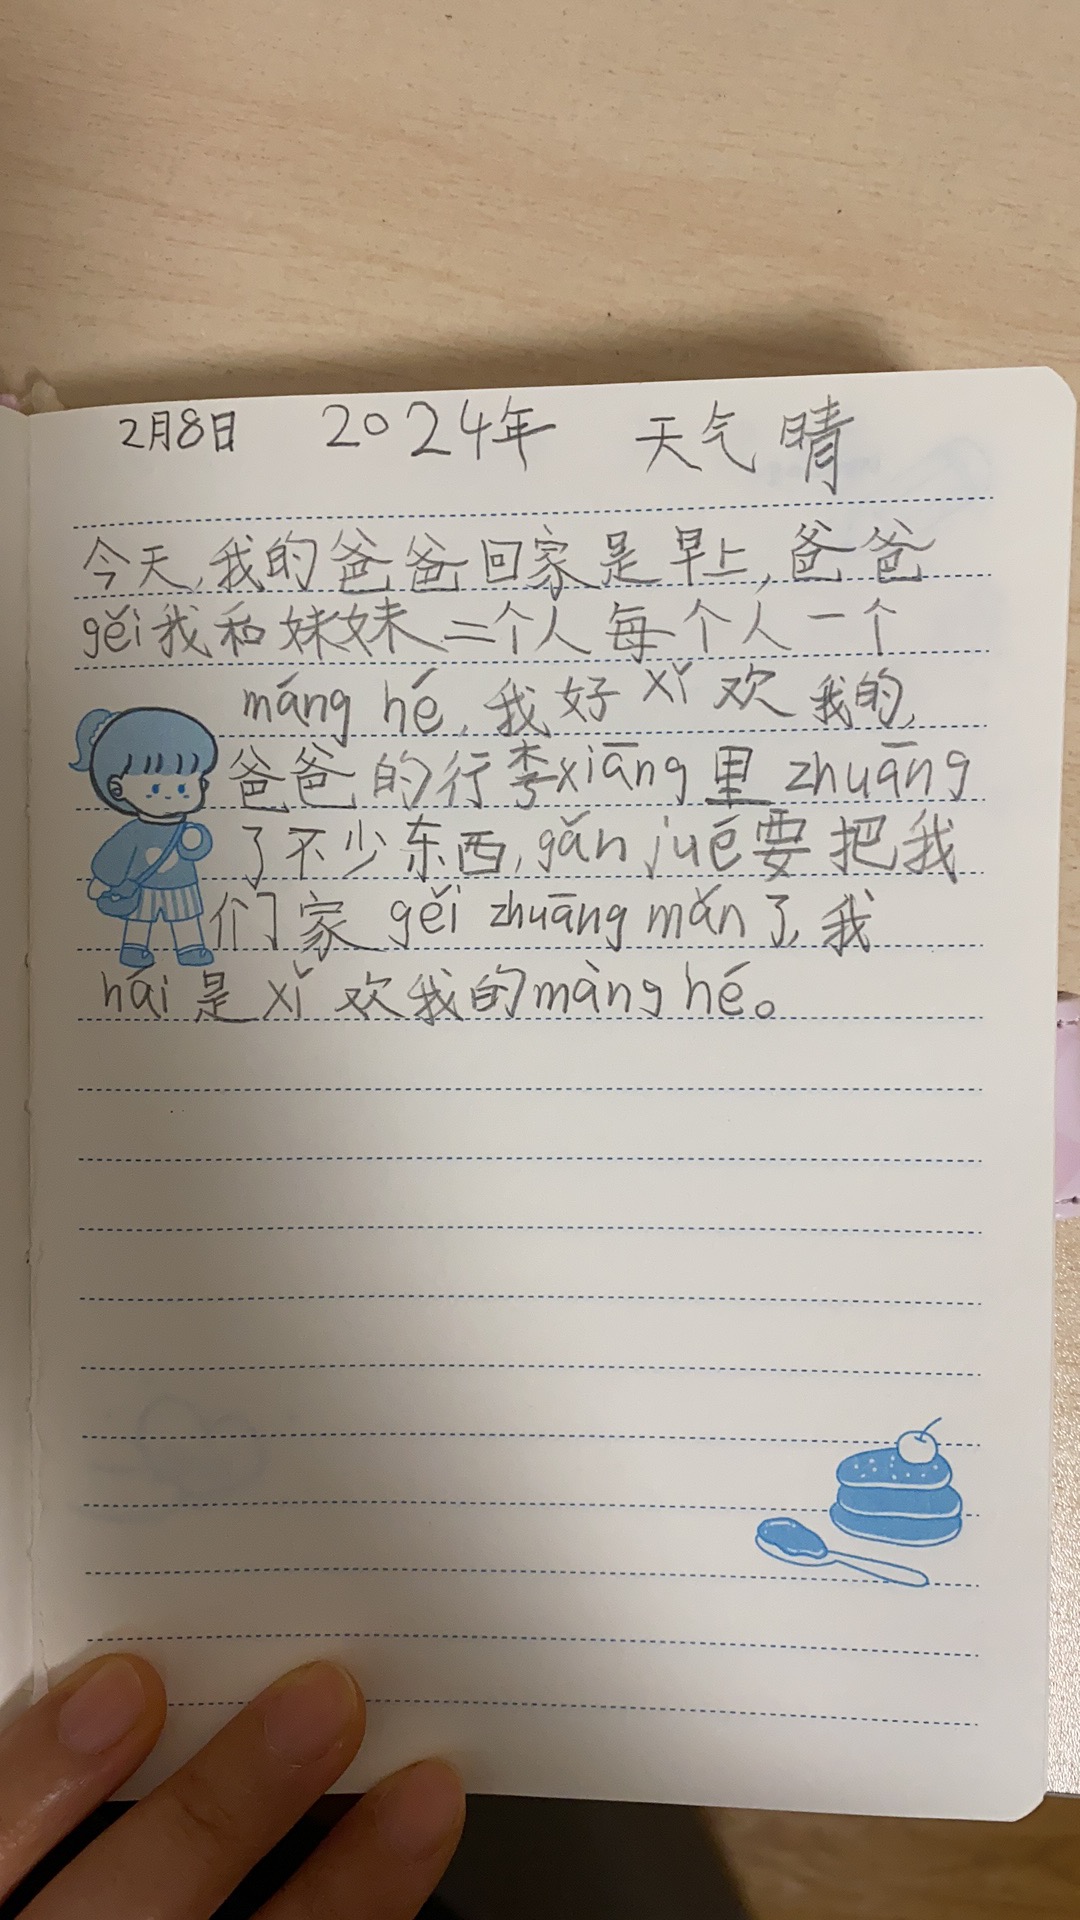 2月8日 2024年 天气 晴
今天,我的爸爸回家是早上,爸爸
gěi我和妹妹二个人每个人一个
máng hé,我好xǐ欢我的,
爸爸的行李xiāng里zhuāng
了不少东西,gǎn jué要把我
们家gěi zhuāng mǎn了,我
hái是xǐ欢我的màng hé。